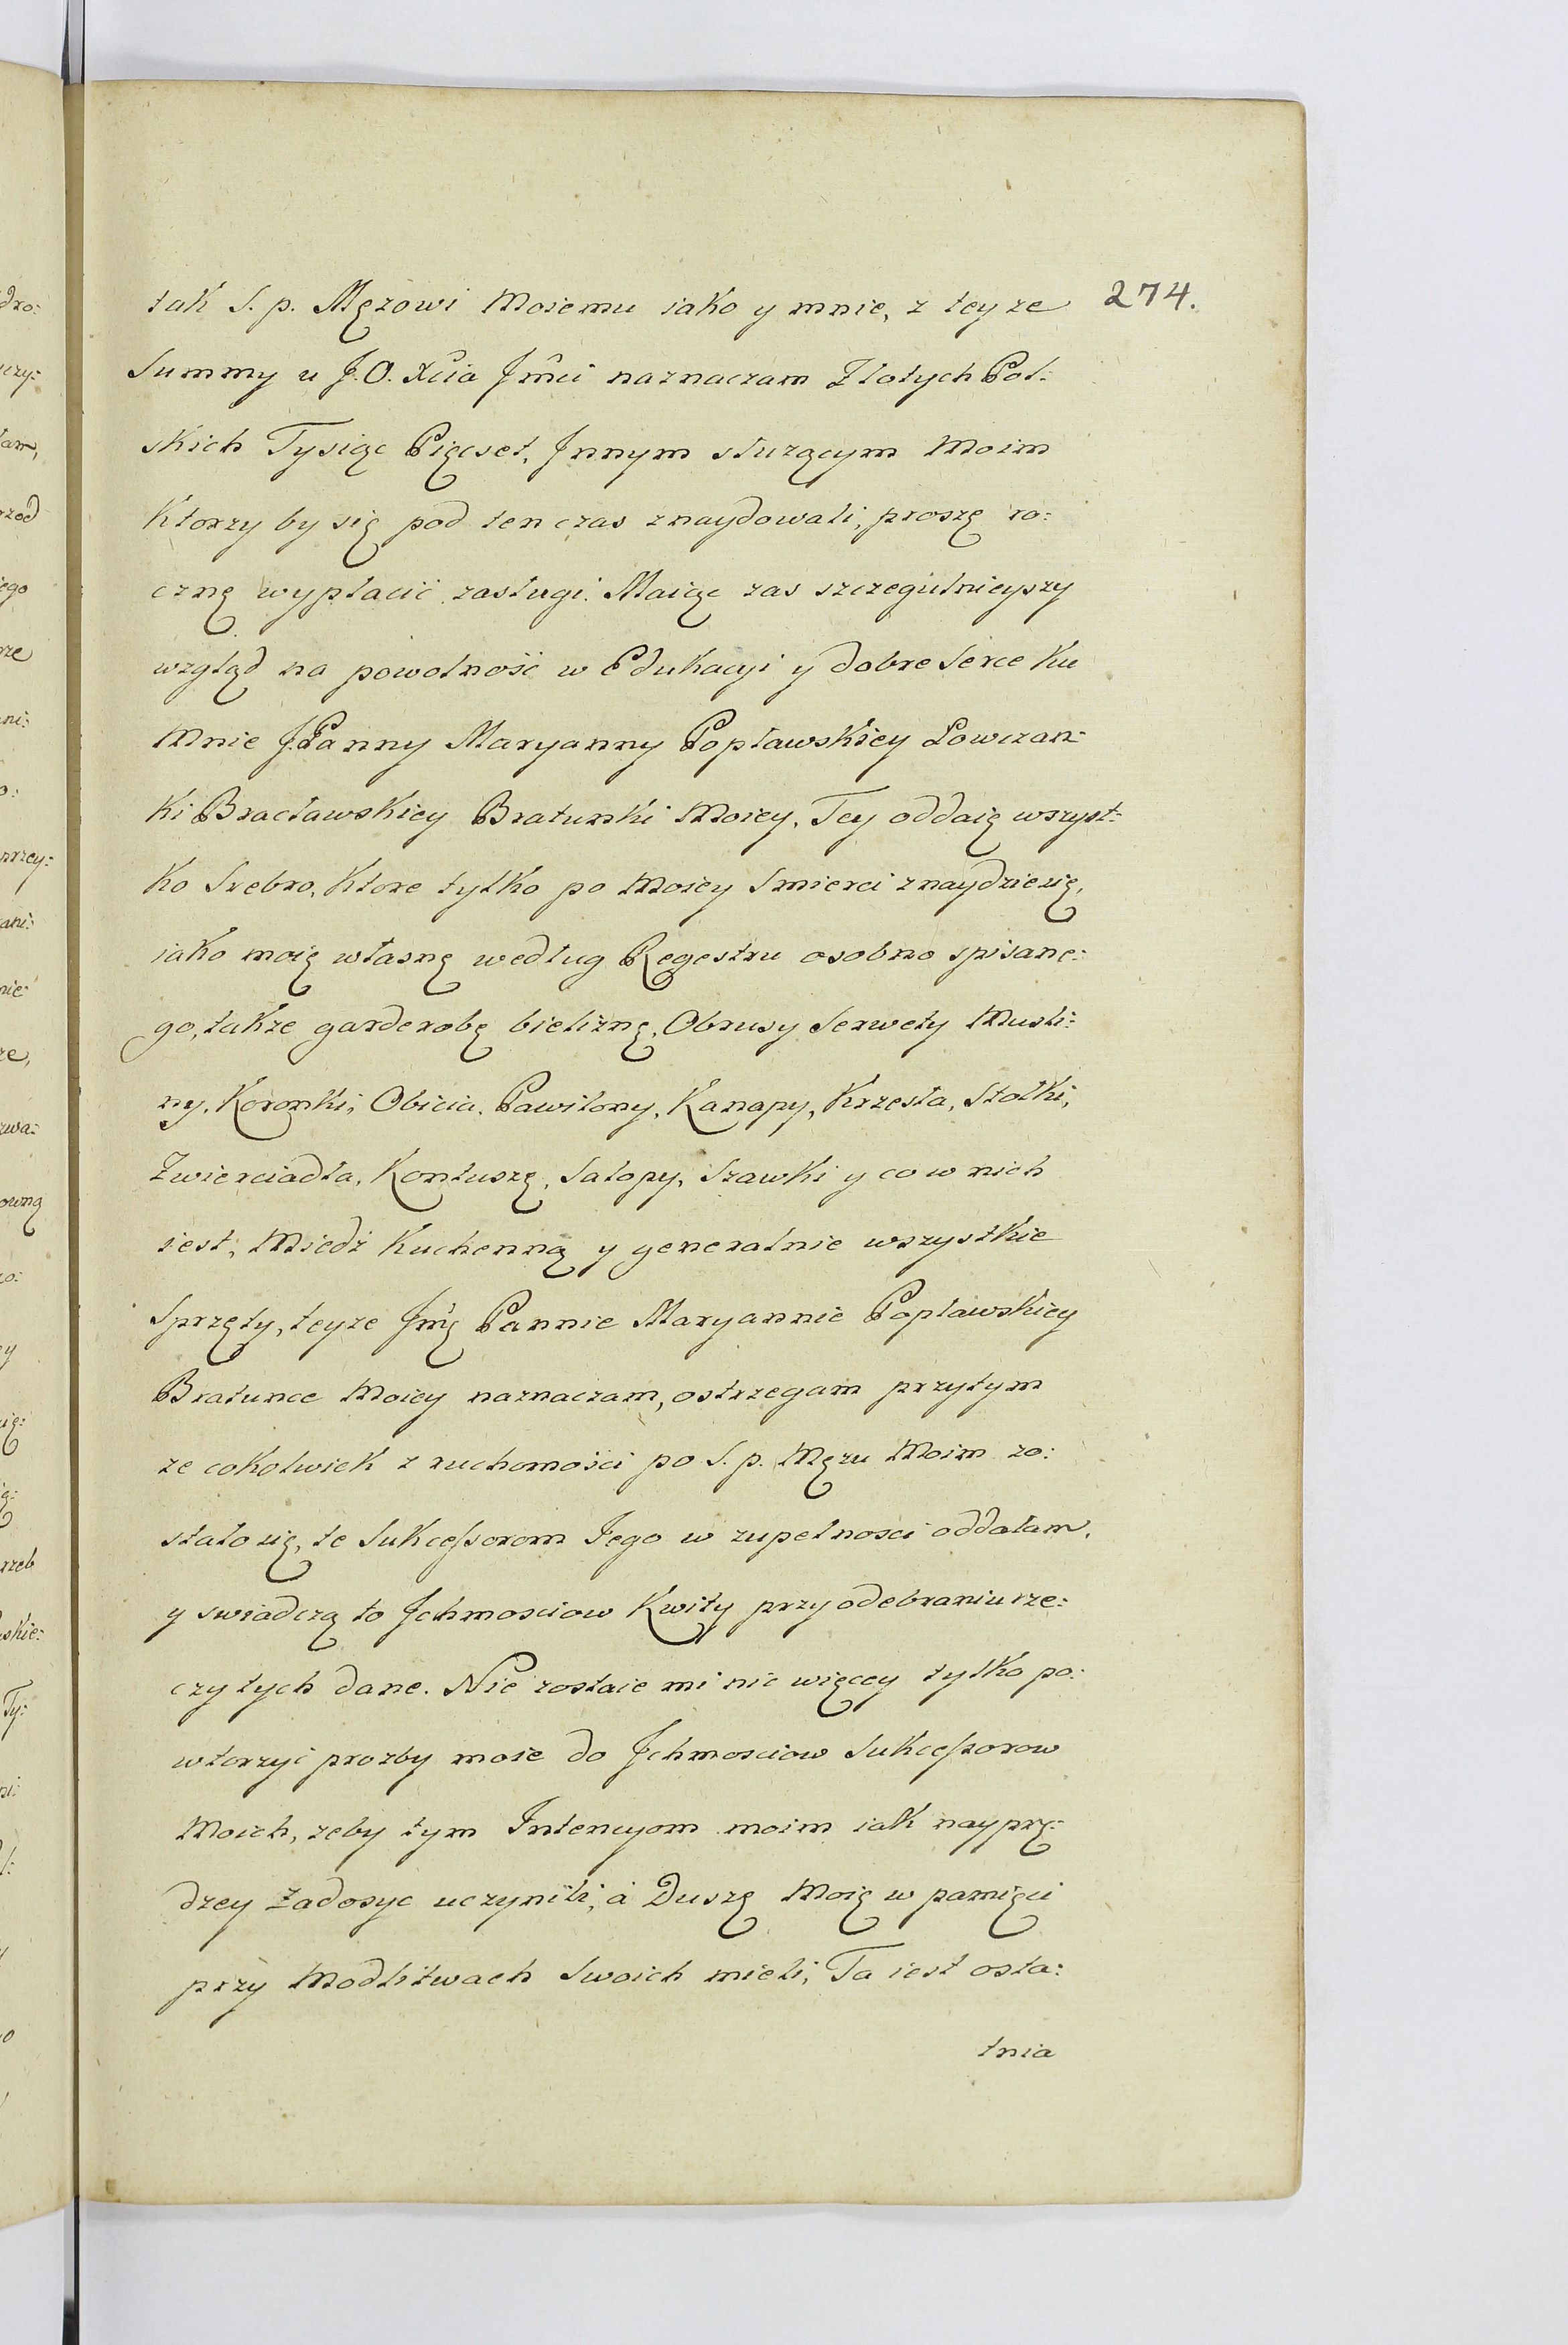 274.
tak S. p. Męzowi Moiemu iako y mnie, z teyze
Summy u J. O. Xcia Jmci naznaczam Złotych Pol:
skich Tysiąc Pięcset, Jnnym służącym Moim
Ktorzy by się pod ten czas znaydowali, proszę ro:
cznę wypłacić zasługi. Maiąc zas szczegulnieyszy
wzgląd na powolność w Edukacyi y dobre Serce ku
Mnie J. Panny Maryanny Popławskiey Łowczan:
ki Bracławskiey Bratunki Moiey, Tey oddaię wszyst:
ko Srebro, Ktore tylko po Moiey Smierci znaydzie się,
iako moię własnę według Regestru osobno spisane:
go, także garderobę bieliznę, Obrusy Serwety Musli:
ny, Koronki, Obicia, Pawilony, Kanapy, Krzesła, Stołki,
Zwierciadła, Kontuszę, Salopy, Szawki y co w nich
iest, Miedź Kuchenną y generalnie wszystkie
Sprzęty, teyze Jmę Pannie Maryannie Popławskiey
Bratunce Moiey naznaczam, ostrzegam przytym
ze cokolwiek z ruchomości po S. p. Męzu Moim zo:
stało się, te Sukcessorom Jego w zupełnosci oddałam,
y swiadczą to Jchmosciow Kwity przy odebraniu rze:
czy tych dane. Nie zostaie mi nic więcey tylko po:
wtorzyć prozby moie do Jchmosciow Sukcessorow
Moich, zeby tym Intencyom moim iak nayprę:
dzey Zadosyc uczynili, á Duszę Moię w pamięci
przy Modlitwach Swoich mieli, Ta iest osta:
tnia